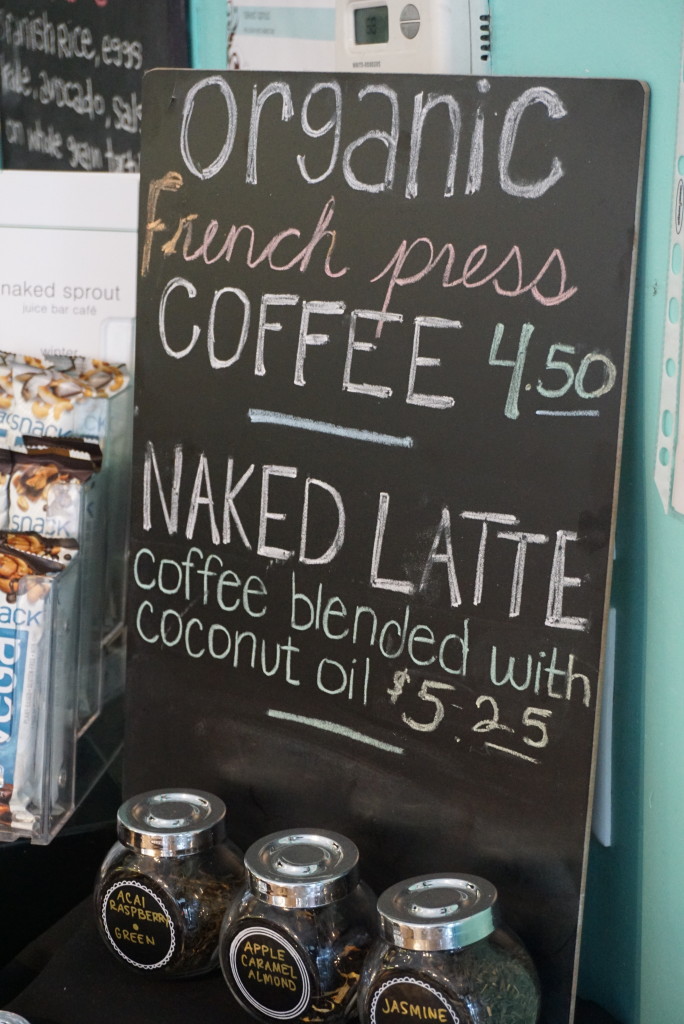 eggs
avocado,
on whole grain
naked sprout
juice bar café
winter
snack
snack
Organic
French press
COFFEE 4.50
NAKED LATTE
coffee blended with
coconut oil $5.25
ACAI
RASPBERRY
GREEN
APPLE
CARAMEL
ALMOND
JASMINE